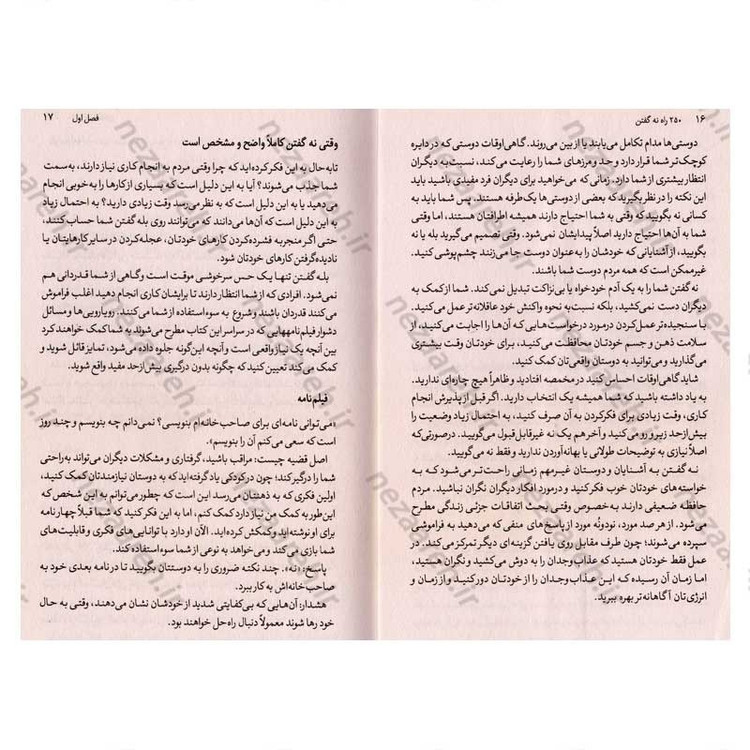 ۱۶ ۲۵۰ راه نه گفتن
دوستی‌ها مدام تکامل می‌یابند یا از بین می‌روند. گاهی اوقات دوستی که در دایره
کوچک‌تر شما قرار دارد و حد و مرزهای شما را رعایت می‌کند، نسبت به دیگران
انتظار بیشتری از شما دارد. زمانی که می‌خواهید برای دیگران فرد مفیدی باشید باید
این نکته را در نظر بگیرید که بعضی از دوستی‌ها یک طرفه هستند. پس شما باید به
کسانی نه بگویید که وقتی به شما احتیاج دارند همیشه اطرافتان هستند، اما وقتی
شما به آن‌ها احتیاج دارید اصلاً پیدایشان نمی‌شود. وقتی تصمیم می‌گیرید بله یا نه
بگویید، از آشنایانی که خودشان را به‌عنوان دوست جا می‌زنند چشم‌پوشی کنید.
غیرممکن است که همه مردم دوست شما باشند.
نه گفتن شما را به یک آدم خودخواه یا بی‌نزاکت تبدیل نمی‌کند. شما از کمک به
دیگران دست نمی‌کشید، بلکه نسبت به نحوه واکنش خود عاقلانه‌تر عمل می‌کنید.
با سنجیده‌تر عمل کردن در مورد درخواست‌هایی که آن‌ها را اجابت می‌کنید، از
سلامت ذهن و جسم خودتان محافظت می‌کنید، برای خودتان وقت بیشتری
می‌گذارید و می‌توانید به دوستان واقعی‌تان کمک کنید.
شاید گاهی اوقات احساس کنید در مخمصه افتادید و ظاهراً هیچ چاره‌ای ندارید.
به یاد داشته باشید که شما همیشه یک انتخاب دارید. اگر قبل از پذیرش انجام
کاری، وقت زیادی برای فکر کردن به آن صرف کنید، به احتمال زیاد وضعیت را
بیش از حد زیر و رو می‌کنید و آخر هم یک نه غیرقابل قبول می‌گویید. در صورتی که
اصلاً نیازی به توضیحات طولانی یا بهانه آوردن ندارید و فقط نه می‌گویید.
نه گفتن به آشنایان و دوستان غیرمهم زمانی راحت‌تر می‌شود که به
خواسته‌های خودتان خوب فکر کنید و در مورد افکار دیگران نگران نباشید. مردم
حافظه ضعیفی دارند به خصوص وقتی بحث اتفاقات جزئی زندگی مطرح
می‌شود. از هر صد مورد، نود و نُه مورد از پاسخ‌های منفی که می‌دهید به فراموشی
سپرده می‌شوند؛ چون طرف مقابل روی یافتن گزینه‌ای دیگر تمرکز می‌کند. در
عمل فقط خودتان هستید که عذاب وجدان را به دوش می‌کشید و نگران هستید،
اما زمان آن رسیده که این عذاب وجدان را از خودتان دور کنید و از زمان و
انرژی‌تان آگاهانه‌تر بهره ببرید.
فصل اول ۱۷
وقتی نه گفتن کاملاً واضح و مشخص است
تا به حال به این فکر کرده‌اید که چرا وقتی مردم به انجام کاری نیاز دارند، به سمت
شما جذب می‌شوند؟ آیا به این دلیل است که بسیاری از کارها را به خوبی انجام
می‌دهید یا به این دلیل است که به نظر می‌رسد وقت زیادی دارید؟ به احتمال زیاد
به این دلیل است که آن‌ها می‌دانند که می‌توانند روی بله گفتن شما حساب کنند،
حتی اگر منجر به فشرده کردن کارهای خودتان، عجله کردن در سایر کارهایتان یا
نادیده گرفتن کارهای خودتان شود.
بله گفتن تنها یک حس سرخوشی موقت است و گاهی از شما قدردانی هم
نمی‌شود. افرادی که از شما انتظار دارند تا برایشان کاری انجام دهید اغلب فراموش
می‌کنند قدردان باشند و شروع به سوءاستفاده از شما می‌کنند. رویارویی‌ها و مسائل
دشوار فیلم‌نامه‌هایی که در سراسر این کتاب مطرح می‌شوند به شما کمک خواهند کرد
بین آنچه یک نیاز واقعی است و آنچه این‌گونه جلوه داده می‌شود، تمایز قائل شوید و
کمک می‌کند تعیین کنید که چگونه بدون درگیری بیش از حد مفید واقع شوید.
فیلم‌نامه
«می‌توانی نامه‌ای برای صاحب‌خانه‌ام بنویسی؟ نمی‌دانم چه بنویسم و چند روز
است که سعی می‌کنم آن را بنویسم».
اصل قضیه چیست: مراقب باشید، گرفتاری و مشکلات دیگران می‌تواند به راحتی
شما را درگیر کند؛ چون در کودکی یاد گرفته‌اید که به دوستان نیازمندتان کمک کنید،
اولین فکری که به ذهنتان می‌رسد این است که چطور می‌توانم به این شخص که
این‌طور به کمک من نیاز دارد کمک کنم، اما به این فکر کنید که شما قبلاً چهار نامه
برای او نوشته‌اید و کمکش کرده‌اید. الآن او دارد با توانایی‌های فکری و قابلیت‌های
شما بازی می‌کند و می‌خواهد به نوعی از شما سوءاستفاده کند.
پاسخ: «نه». چند نکته ضروری را به دوستتان بگویید تا در نامه بعدی خود به
صاحب‌خانه‌اش به کار ببرد.
هشدار: آن‌هایی که بی‌کفایتی شدید از خودشان نشان می‌دهند، وقتی به حال
خود رها شوند معمولاً دنبال راه‌حل خواهند بود.
nezaareh.ir